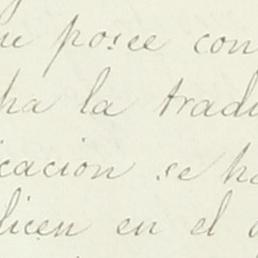 posee con
la tradu
cación se ha
dicen en el